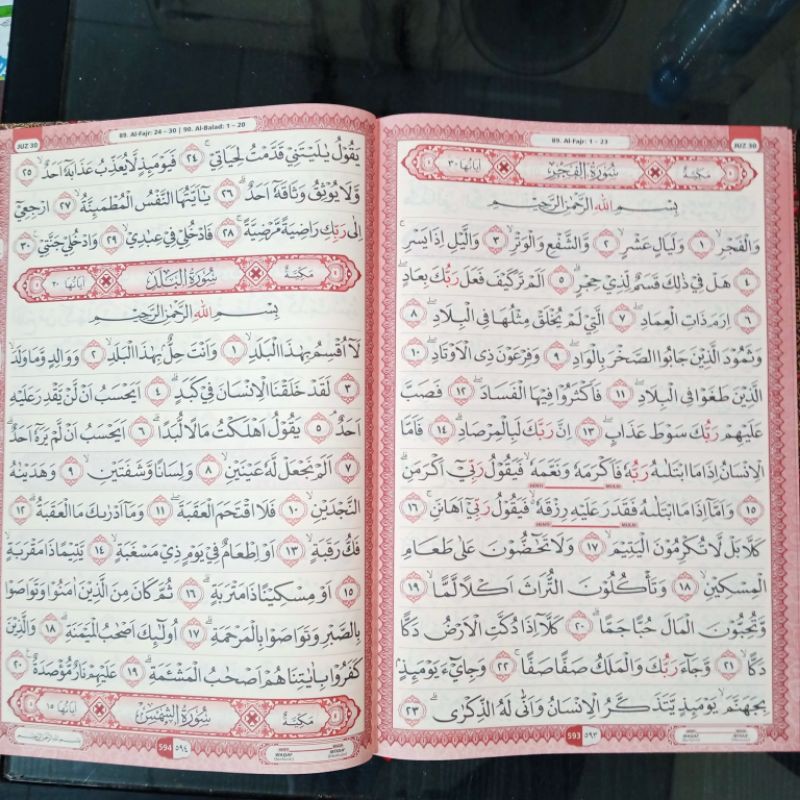 JUZ 30
89. Al-Fajr: 1 - 23
سُورَةُ الْفَجْرِ
مَكِّيَّةٌ
اٰيَاتُهَا ٣٠
بِسْمِ اللهِ الرَّحْمٰنِ الرَّحِيْمِ
وَالْفَجْرِۙ ١ وَلَيَالٍ عَشْرٍۙ ٢ وَّالشَّفْعِ وَالْوَتْرِۙ ٣ وَالَّيْلِ اِذَا يَسْرِۚ
٤ هَلْ فِيْ ذٰلِكَ قَسَمٌ لِّذِيْ حِجْرٍۗ ٥ اَلَمْ تَرَ كَيْفَ فَعَلَ رَبُّكَ بِعَادٍۖ
٦ اِرَمَ ذَاتِ الْعِمَادِۖ ٧ الَّتِيْ لَمْ يُخْلَقْ مِثْلُهَا فِى الْبِلَادِۖ ٨
وَثَمُوْدَ الَّذِيْنَ جَابُوا الصَّخْرَ بِالْوَادِۖ ٩ وَفِرْعَوْنَ ذِى الْاَوْتَادِۖ ١٠
الَّذِيْنَ طَغَوْا فِى الْبِلَادِۖ ١١ فَاَكْثَرُوْا فِيْهَا الْفَسَادَۖ ١٢ فَصَبَّ
عَلَيْهِمْ رَبُّكَ سَوْطَ عَذَابٍۖ ١٣ اِنَّ رَبَّكَ لَبِالْمِرْصَادِۗ ١٤ فَاَمَّا
الْاِنْسَانُ اِذَا مَا ابْتَلٰىهُ رَبُّهٗ فَاَكْرَمَهٗ وَنَعَّمَهٗۙ فَيَقُوْلُ رَبِّيْٓ اَكْرَمَنِۗ
١٥ وَاَمَّآ اِذَا مَا ابْتَلٰىهُ فَقَدَرَ عَلَيْهِ رِزْقَهٗۙ فَيَقُوْلُ رَبِّيْٓ اَهَانَنِۚ ١٦
كَلَّا بَلْ لَّا تُكْرِمُوْنَ الْيَتِيْمَۙ ١٧ وَلَا تَحٰۤضُّوْنَ عَلٰى طَعَامِ
الْمِسْكِيْنِۙ ١٨ وَتَأْكُلُوْنَ التُّرَاثَ اَكْلًا لَّمًّاۙ ١٩
وَّتُحِبُّوْنَ الْمَالَ حُبًّا جَمًّاۗ ٢٠ كَلَّآ اِذَا دُكَّتِ الْاَرْضُ دَكًّا
دَكًّاۙ ٢١ وَّجَآءَ رَبُّكَ وَالْمَلَكُ صَفًّا صَفًّاۚ ٢٢ وَجِايْۤءَ يَوْمَىِٕذٍۢ
بِجَهَنَّمَۙ يَوْمَىِٕذٍ يَّتَذَكَّرُ الْاِنْسَانُ وَاَنّٰى لَهُ الذِّكْرٰىۗ ٢٣
593 ٥٩٣
JUZ 30
89. Al-Fajr: 24 - 30 | 90. Al-Balad: 1 - 20
يَقُوْلُ يٰلَيْتَنِيْ قَدَّمْتُ لِحَيَاتِيْۚ ٢٤ فَيَوْمَىِٕذٍ لَّا يُعَذِّبُ عَذَابَهٗٓ اَحَدٌۙ ٢٥
وَّلَا يُوْثِقُ وَثَاقَهٗٓ اَحَدٌۗ ٢٦ يٰٓاَيَّتُهَا النَّفْسُ الْمُطْمَىِٕنَّةُۙ ٢٧ ارْجِعِيْٓ
اِلٰى رَبِّكِ رَاضِيَةً مَّرْضِيَّةًۚ ٢٨ فَادْخُلِيْ فِيْ عِبٰدِيْۙ ٢٩ وَادْخُلِيْ جَنَّتِيْ ٣٠
سُورَةُ الْبَلَدِ
مَكِّيَّةٌ
اٰيَاتُهَا ٢٠
بِسْمِ اللهِ الرَّحْمٰنِ الرَّحِيْمِ
لَآ اُقْسِمُ بِهٰذَا الْبَلَدِۙ ١ وَاَنْتَ حِلٌّۢ بِهٰذَا الْبَلَدِۙ ٢ وَوَالِدٍ وَّمَا وَلَدَۙ
٣ لَقَدْ خَلَقْنَا الْاِنْسَانَ فِيْ كَبَدٍۗ ٤ اَيَحْسَبُ اَنْ لَّنْ يَّقْدِرَ عَلَيْهِ
اَحَدٌۘ ٥ يَقُوْلُ اَهْلَكْتُ مَالًا لُّبَدًاۗ ٦ اَيَحْسَبُ اَنْ لَّمْ يَرَهٗٓ اَحَدٌۗ
٧ اَلَمْ نَجْعَلْ لَّهٗ عَيْنَيْنِۙ ٨ وَلِسَانًا وَّشَفَتَيْنِۙ ٩ وَهَدَيْنٰهُ
النَّجْدَيْنِۙ ١٠ فَلَا اقْتَحَمَ الْعَقَبَةَۖ ١١ وَمَآ اَدْرٰىكَ مَا الْعَقَبَةُۗ ١٢
فَكُّ رَقَبَةٍۙ ١٣ اَوْ اِطْعَامٌ فِيْ يَوْمٍ ذِيْ مَسْغَبَةٍۙ ١٤ يَّتِيْمًا ذَا مَقْرَبَةٍۙ
١٥ اَوْ مِسْكِيْنًا ذَا مَتْرَبَةٍۗ ١٦ ثُمَّ كَانَ مِنَ الَّذِيْنَ اٰمَنُوْا وَتَوَاصَوْا
بِالصَّبْرِ وَتَوَاصَوْا بِالْمَرْحَمَةِۗ ١٧ اُولٰۤىِٕكَ اَصْحٰبُ الْمَيْمَنَةِۗ ١٨ وَالَّذِيْنَ
كَفَرُوْا بِاٰيٰتِنَا هُمْ اَصْحٰبُ الْمَشْـَٔمَةِۗ ١٩ عَلَيْهِمْ نَارٌ مُّؤْصَدَةٌ ٢٠
سُورَةُ الشَّمْسِ
مَكِّيَّةٌ
اٰيَاتُهَا ١٥
594 ٥٩٤